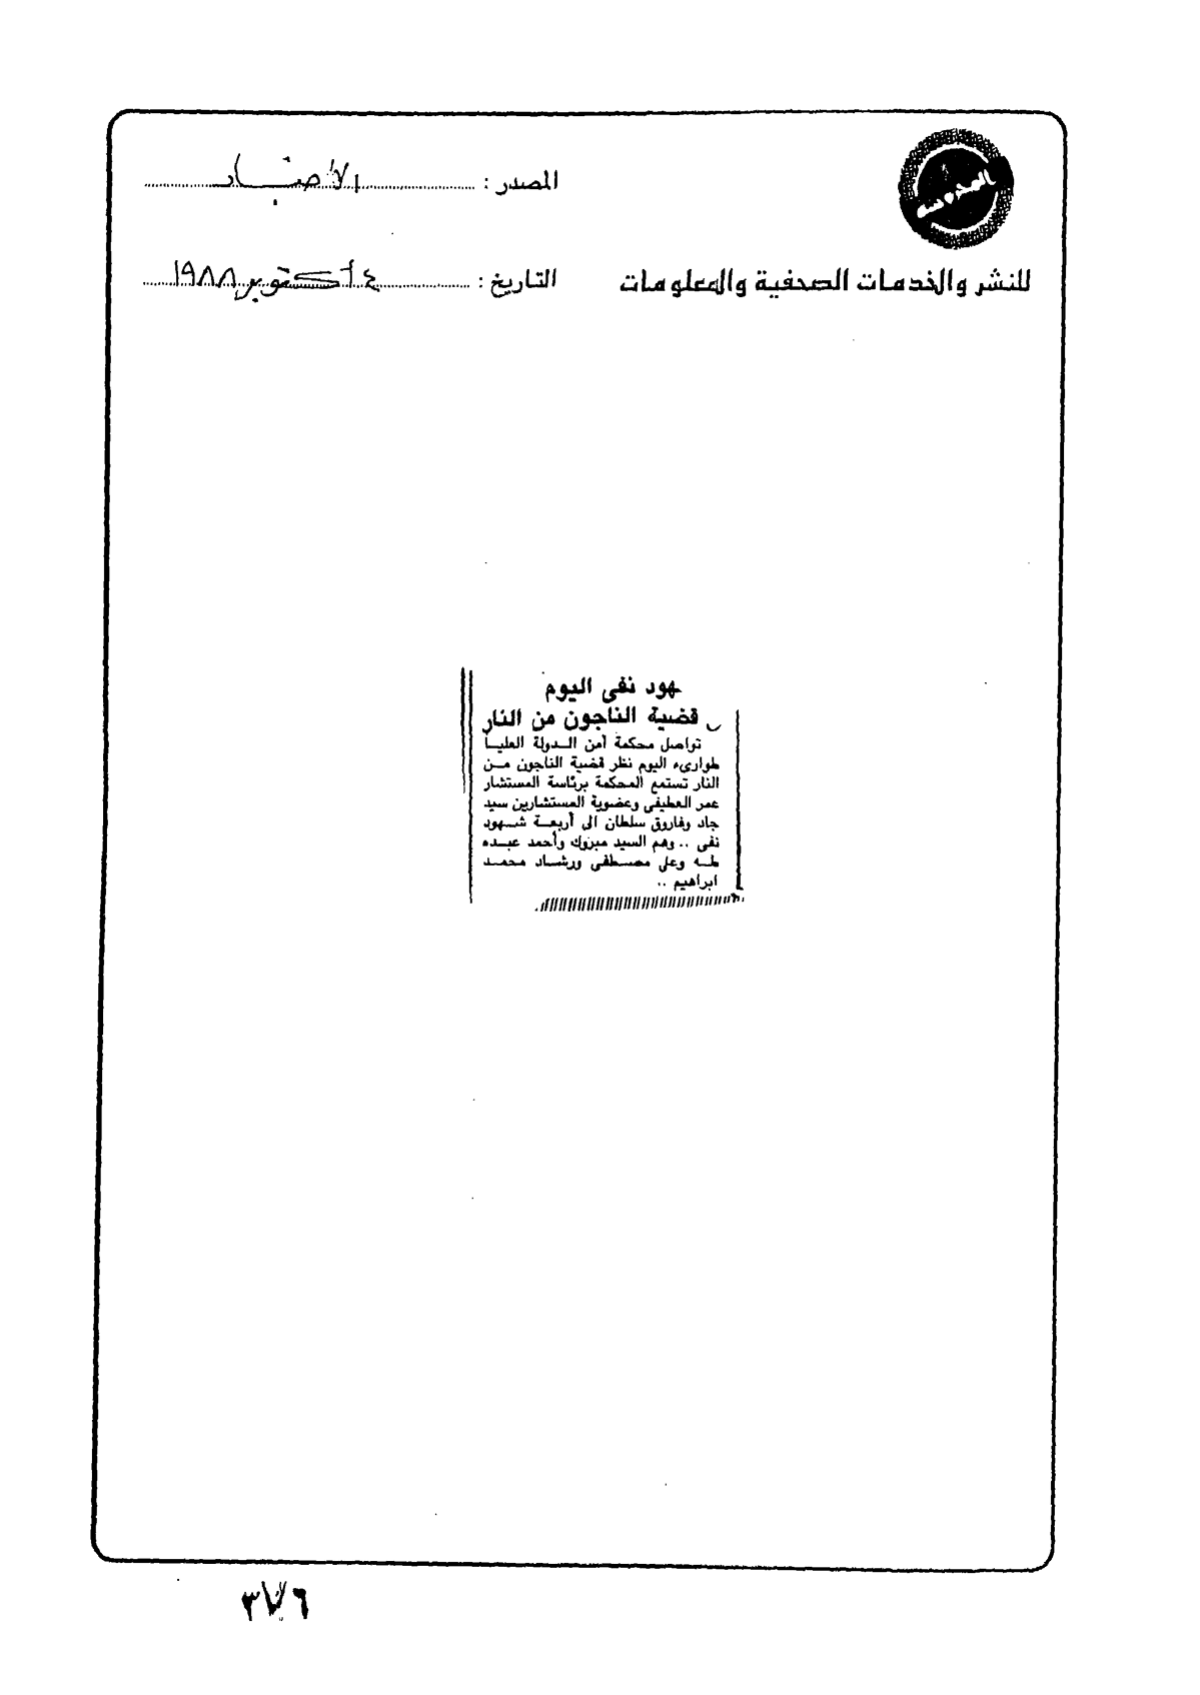 المحروسة
المصدر : الأخبار
للنشر والخدمات الصحفية والمعلومات
التاريخ : ٤ أكتوبر ١٩٨٨
ـهود نفى اليوم
قضية الناجون من النار
تواصل محكمة أمن الدولة العليا
طوارىء اليوم نظر قضية الناجون من
النار تستمع المحكمة برئاسة المستشار
عمر العطيفى وعضوية المستشارين سيد
جاد وفاروق سلطان الى أربعة شهود
نفى .. وهم السيد مبروك وأحمد عبده
طه وعلى مصطفى ورشاد محمد
ابراهيم ..